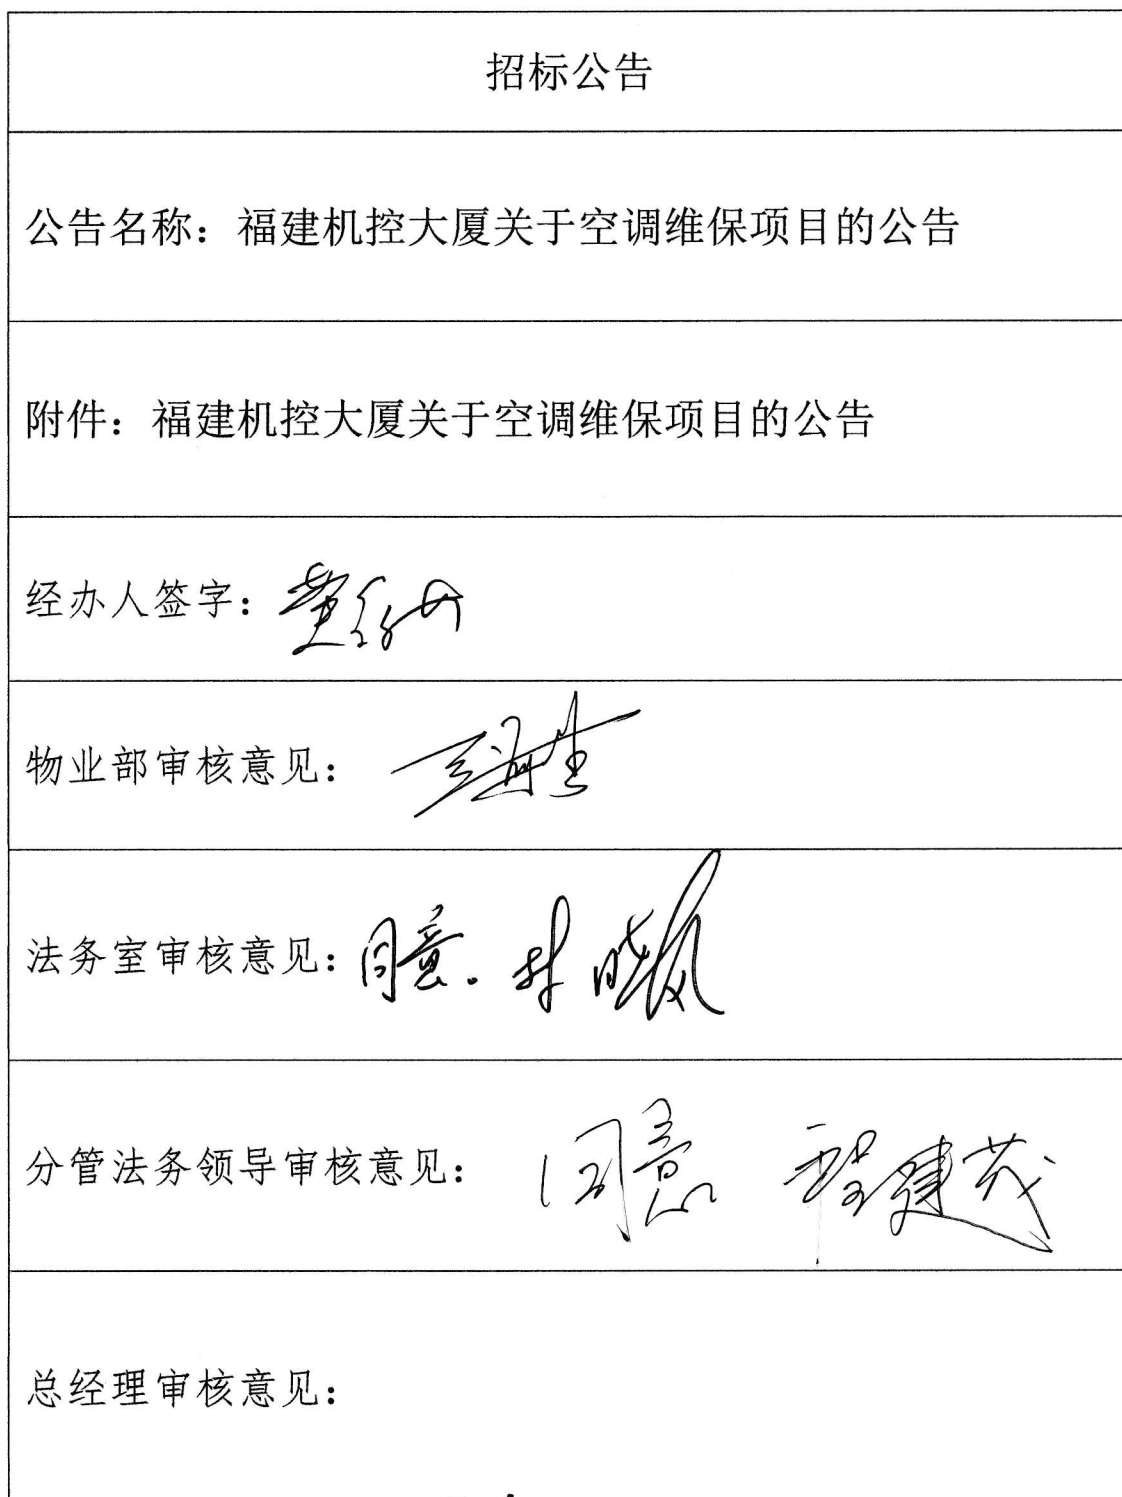 招标公告
公告名称：福建机控大厦关于空调维保项目的公告
附件：福建机控大厦关于空调维保项目的公告
经办人签字：
物业部审核意见：
法务室审核意见：同意。林晓枫
分管法务领导审核意见：同意 程建茂
总经理审核意见：